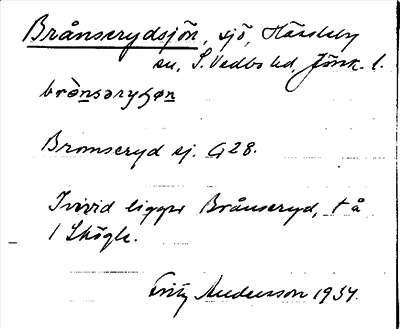 Brånserydsjön, sjö, Hässleby
sn, S. Vedbo hd, Jönk. l.
Bromseryd sj. G 28.
Invid ligger Brånseryd, t å
1 Skögle.
Fritz Andersson 1934.